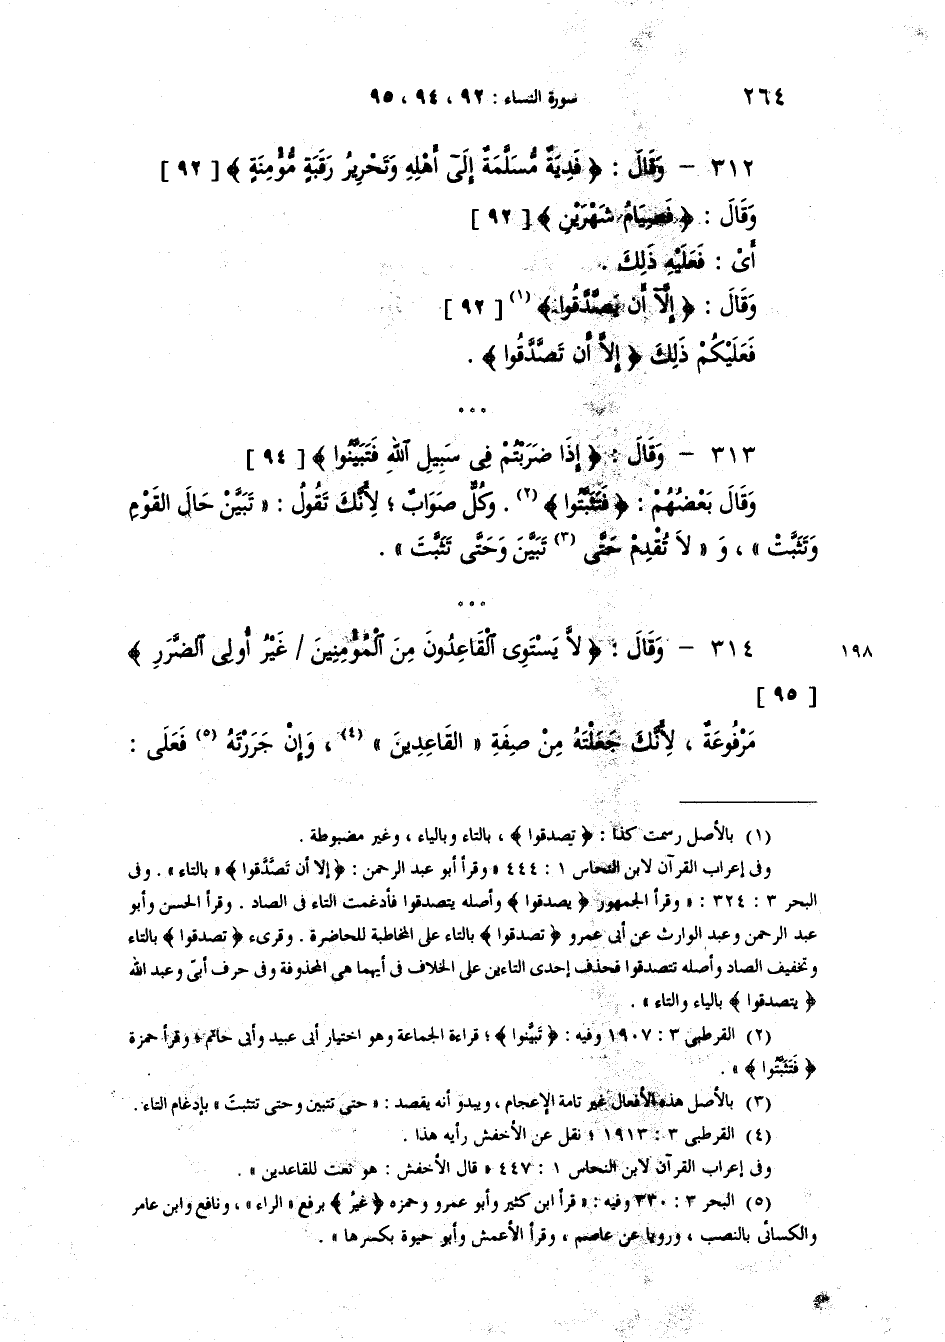 ٢٦٤
سورة النساء : ٩٢ ، ٩٤ ، ٩٥
٣١٢ – وَقَالَ : ﴿ فَدِيَةٌ مُّسَلَّمَةٌ إِلَىٰٓ أَهْلِهِ وَتَحْرِيرُ رَقَبَةٍ مُّؤْمِنَةٍ ﴾ [ ٩٢ ]
وَقَالَ : ﴿ فَصِيَامُ شَهْرَيْنِ ﴾ [ ٩٢ ]
أَىْ : فَعَلَيْهِ ذَلِكَ .
وَقَالَ : ﴿ إِلَّآ أَن يَصَّدَّقُوا ﴾ (١) [ ٩٢ ]
فَعَلَيْكُمْ ذَلِكَ ﴿ إِلاَّ أَن تَصَّدَّقُوا ﴾ .
° ° °
٣١٣ – وَقَالَ : ﴿ إِذَا ضَرَبْتُمْ فِى سَبِيلِ ٱللَّهِ فَتَبَيَّنُوا ﴾ [ ٩٤ ]
وَقَالَ بَعْضُهُمْ : ﴿ فَتَثَبَّتُوا ﴾ (٢) . وَكُلٌّ صَوَابٌ ؛ لِأَنَّكَ تَقُولُ : « تَبَيَّنْ حَالَ القَوْمِ
وَتَثَبَّتْ » ، وَ « لاَ تُقْدِمْ حَتَّى (٣) تَبَيَّنَ وَحَتَّى تَثَبَّتَ » .
° ° °
٣١٤ – وَقَالَ : ﴿ لاَّ يَسْتَوِى ٱلْقَاعِدُونَ مِنَ ٱلْمُؤْمِنِينَ / غَيْرُ أُولِى ٱلضَّرَرِ ﴾
١٩٨
[ ٩٥ ]
مَرْفُوعَةٌ ، لِأَنَّكَ جَعَلْتَهُ مِنْ صِفَةِ « القَاعِدِينَ » (٤) ، وَإِنْ جَرَرْتَهُ (٥) فَعَلَى :
(١) بالأصل رسمت كذا : ﴿ تصدقوا ﴾ ، بالتاء وبالياء ، وغير مضبوطة .
وفى إعراب القرآن لابن النحاس ١ : ٤٤٤ « وقرأ أبو عبد الرحمن : ﴿ إلا أن تَصَّدَّقوا ﴾ « بالتاء » . وفى
البحر ٣ : ٣٢٤ : « وقرأ الجمهور ﴿ يصدقوا ﴾ وأصله يتصدقوا فأدغمت التاء فى الصاد . وقرأ الحسن وأبو
عبد الرحمن وعبد الوارث عن أبى عمرو ﴿ تصدقوا ﴾ بالتاء على المخاطبة للحاضرة . وقرىء ﴿ تصدقوا ﴾ بالتاء
وتخفيف الصاد وأصله تتصدقوا فحذف إحدى التاءين على الخلاف فى أيهما هى المحذوفة وفى حرف أبىّ وعبد الله
﴿ يتصدقوا ﴾ بالياء والتاء » .
(٢) القرطبى ٣ : ١٩٠٧ وفيه : ﴿ تَبَيَّنوا ﴾ ؛ قراءة الجماعة وهو اختيار أبى عبيد وأبى حاتم ؛ وقرأ حمزة
﴿ فَتَثَبَّتُوا ﴾ » .
(٣) بالأصل هذه الأفعال غير تامة الإعجام ، ويبدو أنه يقصد : « حتى تتبين وحتى تتثبتَ » بإدغام التاء .
(٤) القرطبى ٣ : ١٩١٣ ؛ نقل عن الأخفش رأيه هذا .
وفى إعراب القرآن لابن النحاس ١ : ٤٤٧ « قال الأخفش : هو نعت للقاعدين » .
(٥) البحر ٣ : ٣٣٠ وفيه : « قرأ ابن كثير وأبو عمرو وحمزه ﴿ غيرُ ﴾ برفع « الراء » ، ونافع وابن عامر
والكسائى بالنصب ، ورويا عن عاصم ، وقرأ الأعمش وأبو حيوة بكسرها » .